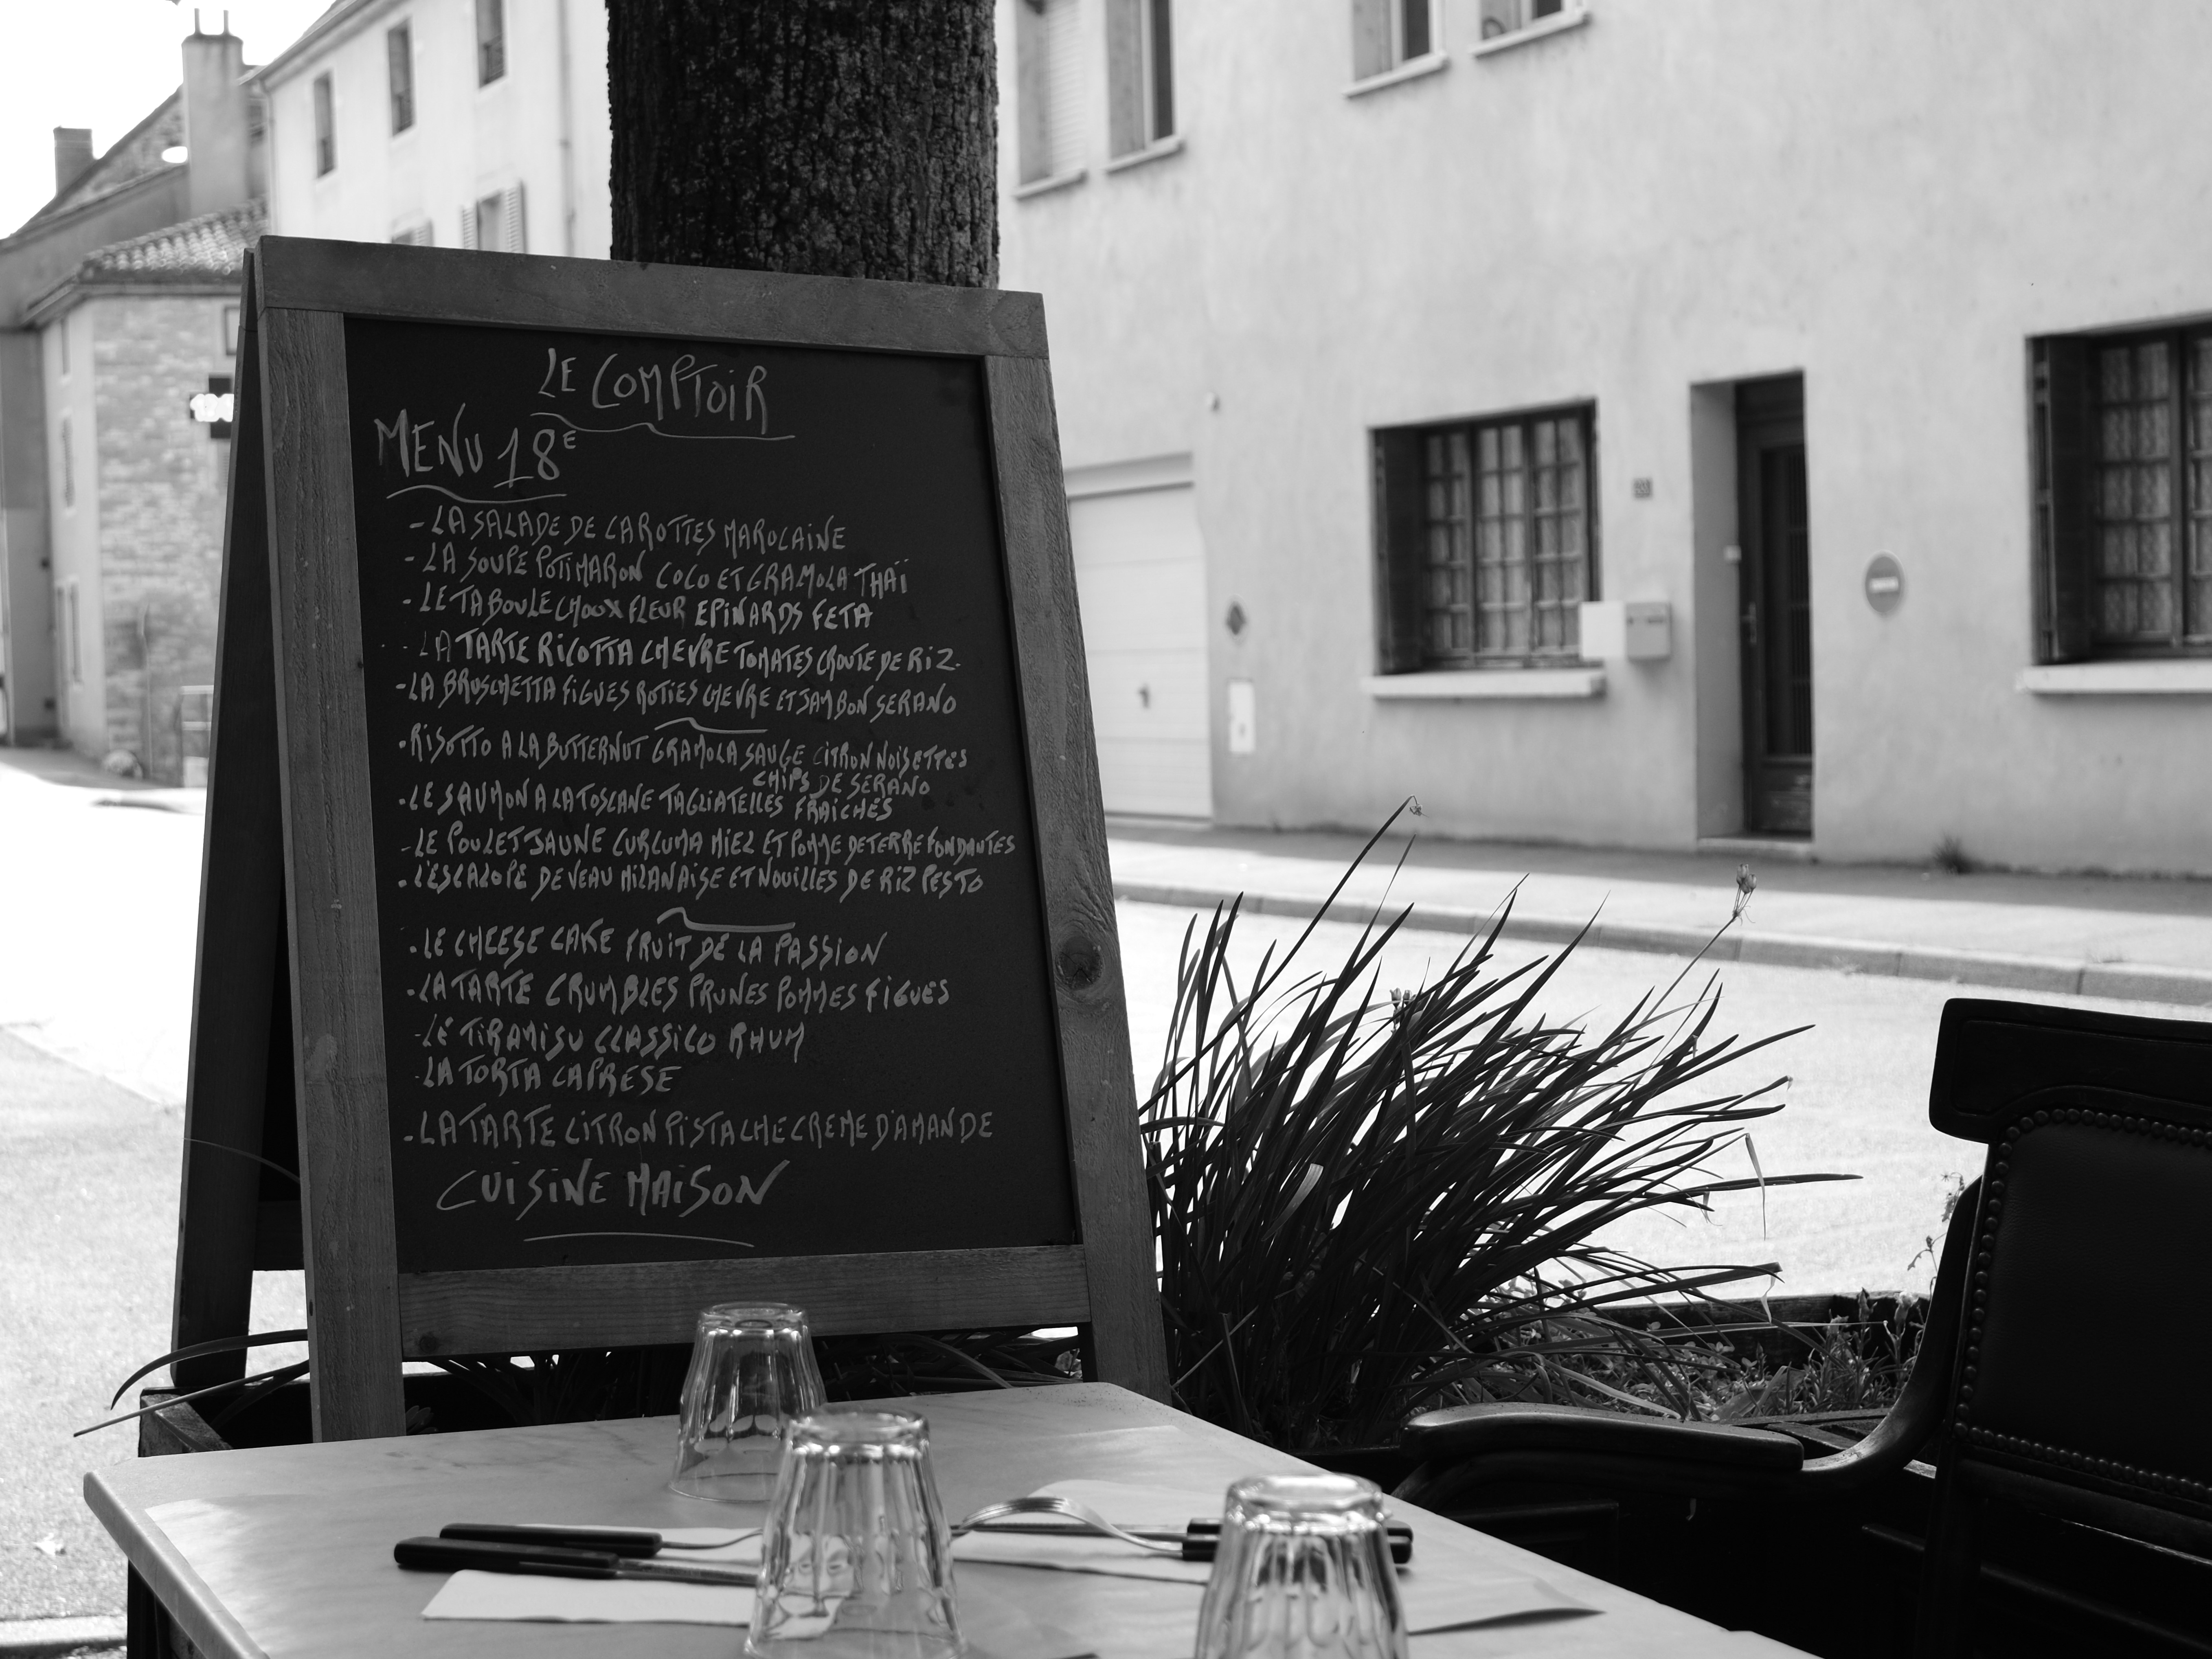 LE COMPTOIR
MENU 18€
- LA SALADE DE CAROTTES MAROCAINE
- LA SOUPE POTIMARON COCO ET GRAMOLA THAÏ
- LE TABOULE CHOUX FLEUR EPINARDS FETA
- LA TARTE RICOTTA CHEVRE TOMATES CROUTE DE RIZ.
- LA BRUSCHETTA FIGUES ROTIES CHEVRE ET JAMBON SERANO
. RISOTTO A LA BUTTERNUT GRAMOLA SAUGE CITRON NOISETTES
CHIPS DE SERANO
. LE SAUMON A LA TOSCANE TAGLIATELLES FRAICHES
- LE POULET JAUNE CURCUMA MIEL ET POMME DE TERRE FONDANTES
. L'ESCALOPE DE VEAU MILANAISE ET NOUILLES DE RIZ PESTO
. LE CHEESE CAKE FRUIT DE LA PASSION
. LA TARTE CRUMBLES PRUNES POMMES FIGUES
- LE TIRAMISU CLASSICO RHUM
- LA TORTA CAPRESE
. LA TARTE CITRON PISTACHE CREME D'AMANDE
CUISINE MAISON